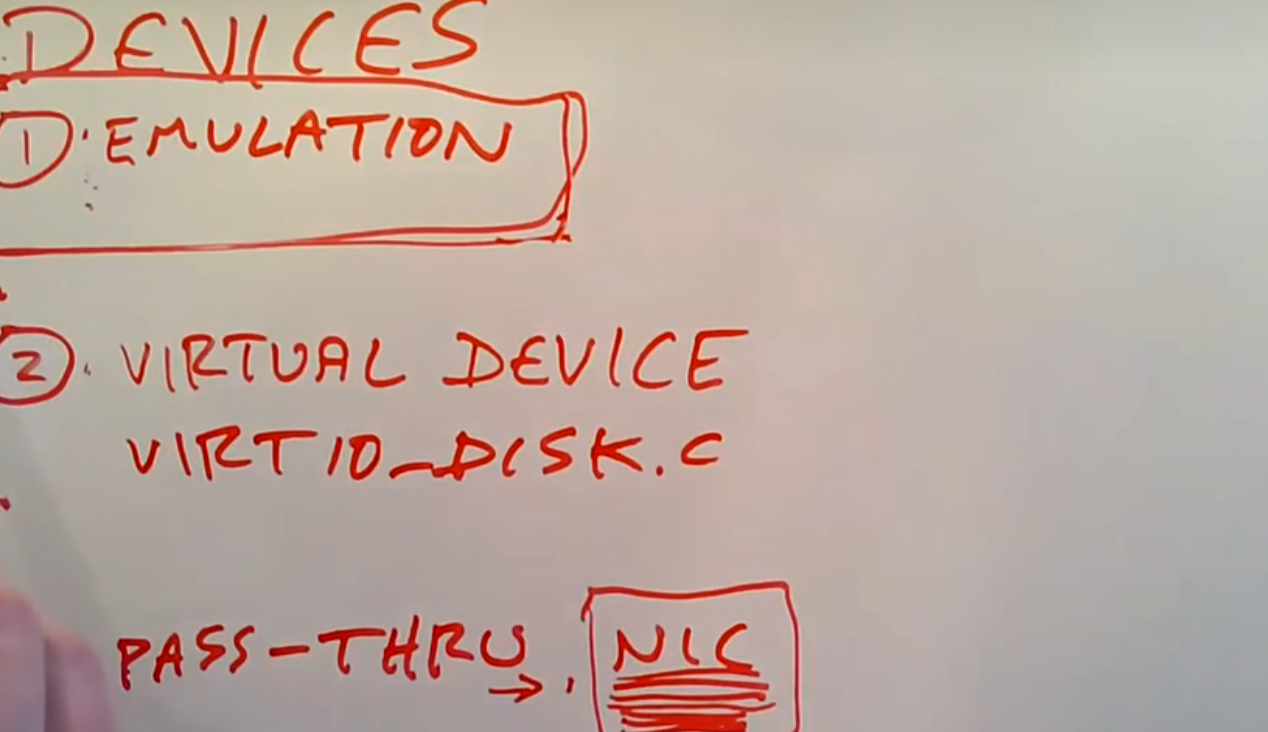 DEVICES
1. EMULATION
2. VIRTUAL DEVICE
VIRTIO_DISK.C
PASS-THRU → NIC